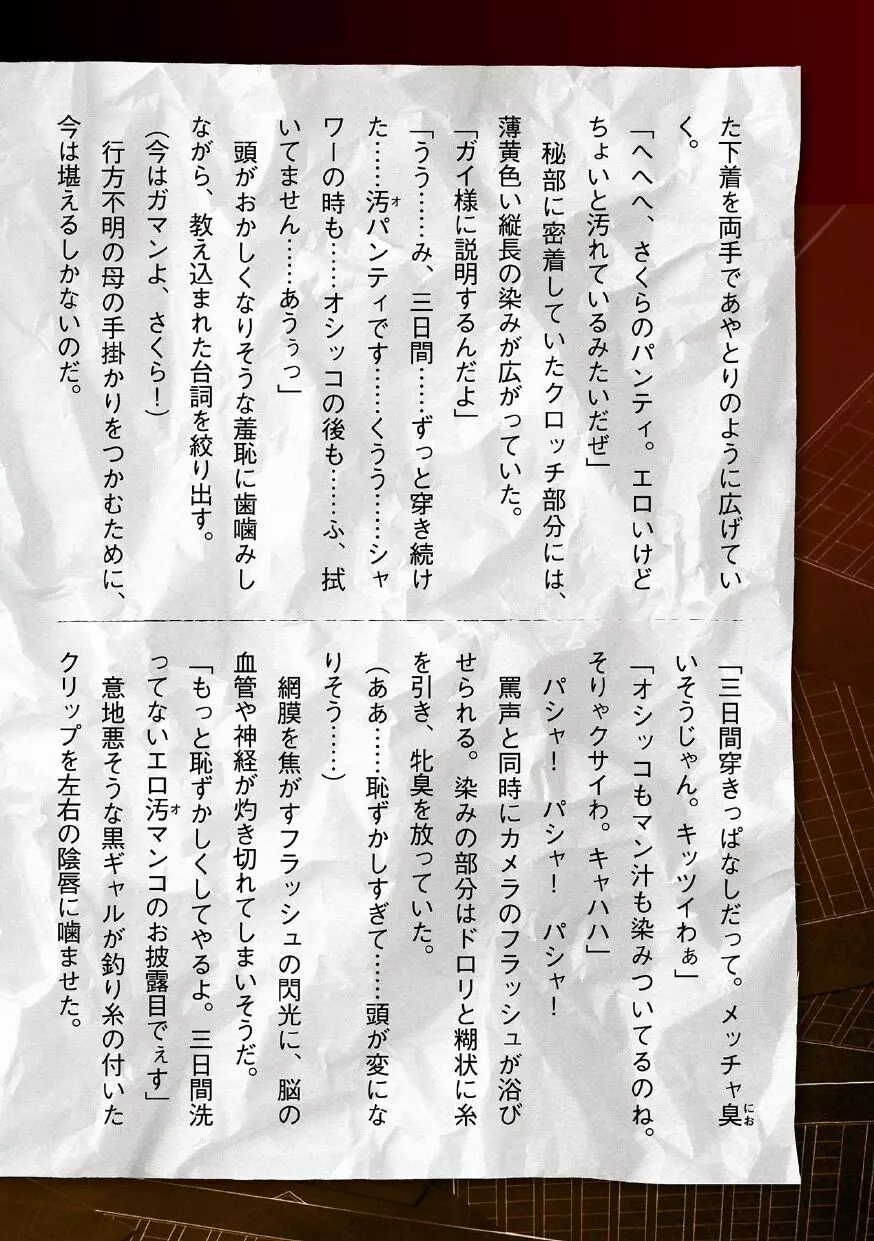 た下着を両手であやとりのように広げてい
く。
「へへへ、さくらのパンティ。エロいけど
ちょいと汚れているみたいだぜ」
　秘部に密着していたクロッチ部分には、
薄黄色い縦長の染みが広がっていた。
「ガイ様に説明するんだよ」
「うう……み、三日間……ずっと穿き続け
た……汚パンティです……くうう……シャ
ワーの時も……オシッコの後も……ふ、拭
いてません……あうぅっ」
　頭がおかしくなりそうな羞恥に歯噛みし
ながら、教え込まれた台詞を絞り出す。
（今はガマンよ、さくら！）
　行方不明の母の手掛かりをつかむために、
今は堪えるしかないのだ。
「三日間穿きっぱなしだって。メッチャ臭
いそうじゃん。キッツイわぁ」
「オシッコもマン汁も染みついてるのね。
そりゃクサイわ。キャハハ」
　パシャ！　パシャ！　パシャ！
　罵声と同時にカメラのフラッシュが浴び
せられる。染みの部分はドロリと糊状に糸
を引き、牝臭を放っていた。
（ああ……恥ずかしすぎて……頭が変にな
りそう……）
　網膜を焦がすフラッシュの閃光に、脳の
血管や神経が灼き切れてしまいそうだ。
「もっと恥ずかしくしてやるよ。三日間洗
ってないエロ汚マンコのお披露目でぇす」
　意地悪そうな黒ギャルが釣り糸の付いた
クリップを左右の陰唇に噛ませた。